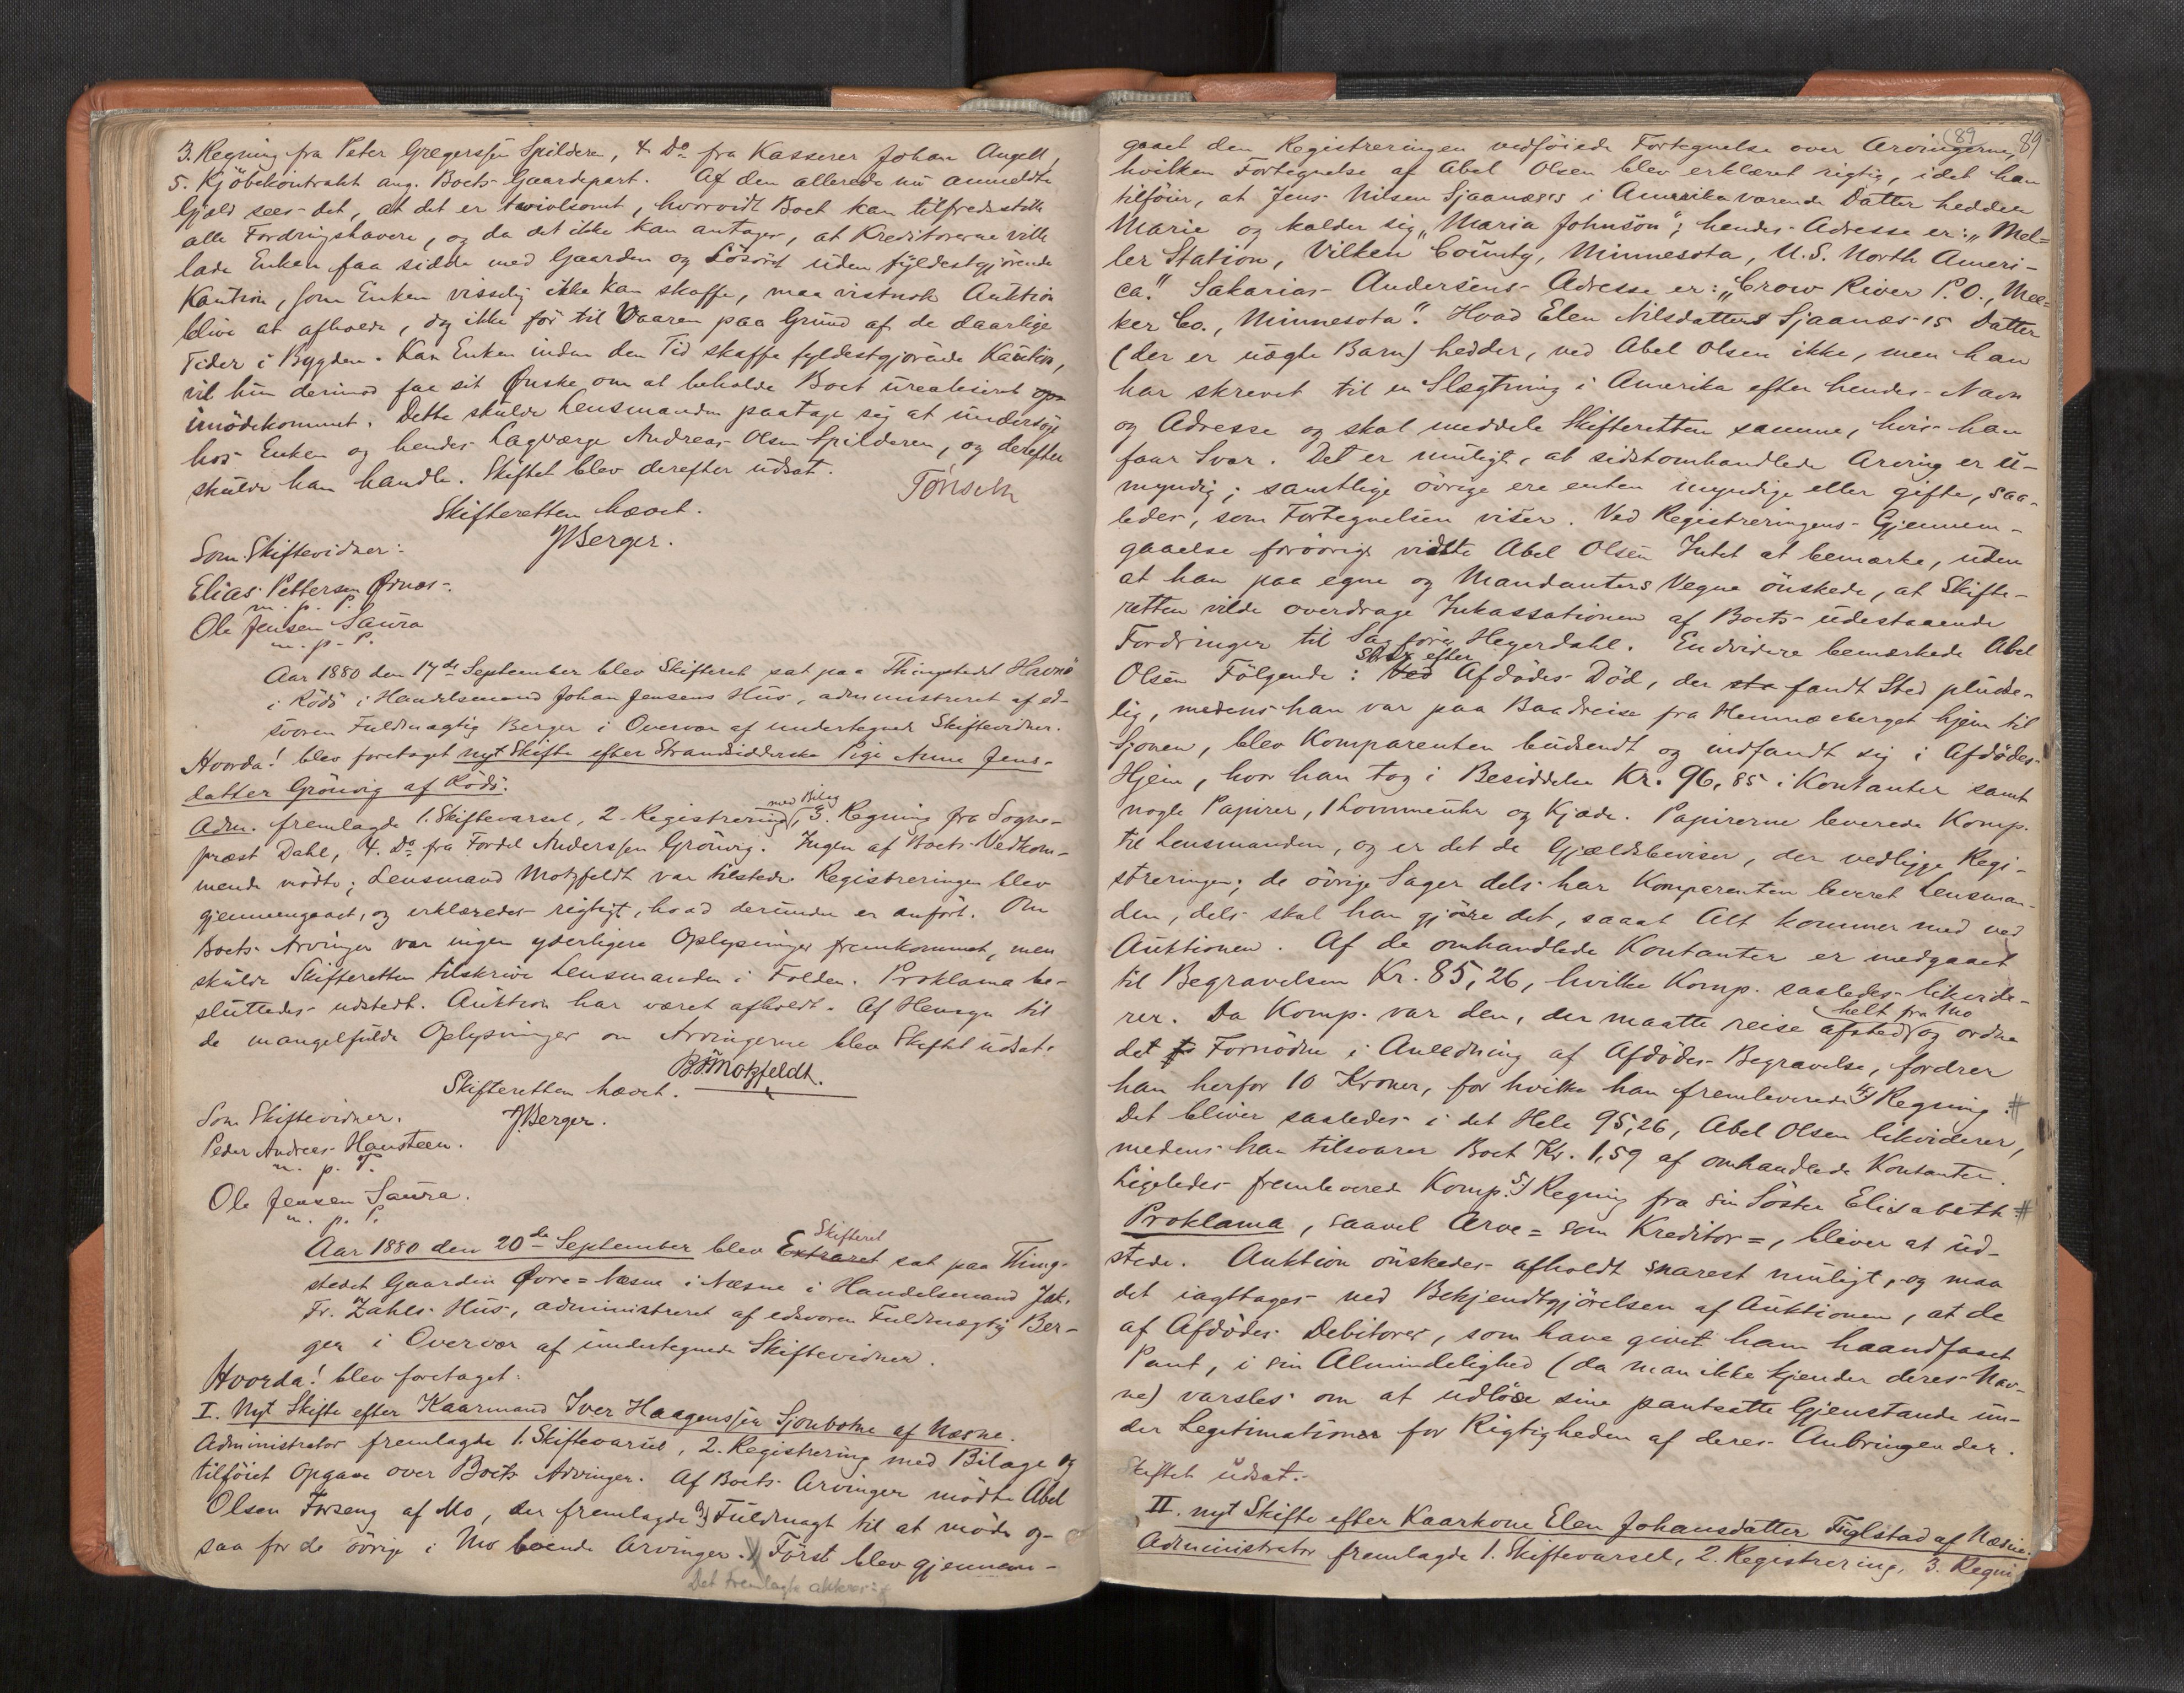 3. Regning fra Peter Gregerssen Spilderen, 4 Do fra Kasserer Johan Angell,
5. Kjöbekontrakt ang. Boets Gaardepart. Af den allerede nu anmeldte
Gjæld sees det, at det er tvivlsomt, hvorvidt Boet kan tilfredsstille
alle Fordringshavere, og da det ikke kan antages, at Kreditorerne ville
lade Enken faa sidde med Gaarden og Lösöret uden fyldestgjörende
Kaution, som Enken visselig ikke kan skaffe, maa vistnok Auktion
blive at afholde, dog ikke før til Vaaren paa Grund af de daarlige
Tider i Bygden. Kan Enken inden den Tid skaffe fyldestgjørende Kaution,
vil hun derimod faa sit Ønske om at beholde Boet urealiseret
imödekommet. Dette skulde Lensmanden paatage sig at undersöge
hos Enken og hendes Lagværge Andreas Olsen Spilderen, og derefter
skulde han handle. Skiftet blev derefter udsat.
Skifteretten hævet.
JBerger.
Som Skiftevidner:
Elias Pettersen Ørnæs
m. p. P.
Ole Jensen Saura
m. p. P.
Aar 1880 den 17de September blev Skifteret sat paa Thingstedet Havnö
i Rödö i Handelsmand Johan Jensens Hus, administreret af ed-
svoren Fuldmægtig Berger i Overvær af undertegnede Skiftevidner.
Hvorda! blev foretaget nyt Skifte efter Strandsidderske Pige Anne Jens-
datter Grönvig af Rödö.
Adm. fremlagde 1. Skiftevarsel, 2. Registrering med Bilag, 3. Regning fra Sogne-
præst Dahl, 4. Do fra Fordel Anderssen Grönvig. Ingen af Boets Vedkom-
mende mödte; Lensmand Motzfeldt var tilstede. Registreringen blev
gjennemgaaet, og erklæredes rigtigt, hvad derunder er anfört. Om
Boets Arvinger var ingen yderligere Oplysninger fremkommet, men
skulde Skifteretten tilskrive Lensmanden i Folden. Proklama be-
sluttedes udstedt. Auktion har været afholdt. Af Hensyn til
de mangelfulde Oplysninger om Arvingerne blev Skiftet udsat.
Motzfeldt.
Skifteretten hævet.
JBerger.
Som Skiftevidner.
Peder Andreas Hansteen.
m. p. P.
Ole Jensen Saura.
m. p. P.
Aar 1880 den 20de September blev Extraret Skifteret sat paa Thing-
stedet Gaarden Øvre=Næsne i Næsne i Handelsmand Jak.
Fr. Zahls Hus, administreret af edsvoren Fuldmægtig Ber-
ger i Overvær af undertegnede Skiftevidner.
Hvorda! blev foretaget:
I. Nyt Skifte efter Kaarmand Iver Haagenssen Sjonbotne af Næsne.
Administrator fremlagde 1. Skiftevarsel, 2. Registrering med Bilage og
tilföiet Opgave over Boets Arvinger. Af Boets Arvinger mödte Abel
Olsen Forseng af Mo, der fremlagde 3) Fuldmagt til at möde og-
saa for de övrige i Mo boende Arvinger. Först blev gjennem-
Det Fremlagte akteres:
89 89
gaaet den Registreringen vedföiede Fortegnelse over Arvingerne,
hvilken Fortegnelse af Abel Olsen blev erklæret rigtig, idet han
tilföier, at Jens Nilsen Sjaanæs's i Amerika værende Datter hedder
Marie og kalder sig „Maria Johnson"; hendes Adresse er: „Mel=
ler Station, Vilken County, Minnesota, U.S. North Ameri-
ca." Sakarias Andersens Adresse er: „Crow River P.O., Mee=
ker Co., Minnesota". Hvad Elen Nilsdatters Sjaanæs's Datter
(der er uægte Barn) hedder, ved Abel Olsen ikke, men han
har skrevet til en Slægtning i Amerika efter hendes Navn
og Adresse og skal meddele Skifteretten samme, hvis han
faar Svar. Det er muligt, at sidstomhandlede Arving er u-
myndig; samtlige övrige ere enten myndige eller gifte, saa-
ledes, som Fortegnelsen viser. Ved Registreringens Gjennem-
gaaelse forövrigt vidste Abel Olsen Intet at bemærke, uden
at han paa egne og Mandanters Vegne önskede, at Skifte-
retten vilde overdrage Inkassationen af Boets udestaaende
Fordringer til Sagförer Heyerdahl. Endvidere bemærkede Abel
Olsen Fölgende: Ved Strax efter Afdödes Död, der fandt Sted pludse-
lig, medens han var paa Baadreise fra Hemnæsberget hjem til
Sjonen, blev Komparenten budsendt og indfandt sig i Afdödes
Hjem, hvor han tog i Besiddelse Kr. 96,85 i Kontanter samt
nogle Papirer, 1 Lommeuhr og Kjæde. Papirerne leverede Komp.
til Lensmanden, og er det de Gjældsbeviser, der vedligge Regi-
streringen; de övrige Sager dels har Komparenten leveret Lensman-
den, dels skal han gjöre det, saaat Alt kommer med ved
Auktionen. Af de omhandlede Kontanter er medgaaet
til Begravelsen Kr. 85,26, hvilke Komp. saaledes likvide-
rer. Da Komp. var den, der maatte reise afsted helt fra Mo og ordne
det Fornödne i Anledning af Afdödes Begravelse, fordrer
han herfor 10 Kroner, for hvilke han fremleverede 4) Regning. #
Det bliver saaledes i det Hele 95,26, Abel Olsen likviderer,
medens han tilsvarer Boet Kr. 1,59 af omhandlede Kontanter.
Ligeledes fremleverede Komp. 5) Regning fra sin Söster Elisabeth #
Proklama, saavel Arve= som Kreditor=, bliver at ud-
stede. Auktion önskedes afholdt snarest muligt, og maa
det iagttages ved Bekjendtgjörelsen af Auktionen, at de
af Afdödes Debitorer, som have givet ham haandfaaet
Pant, i sin Almindelighed (da man ikke kjender deres Nav-
ne) varsles om at udlöse sine pantsatte Gjenstande un-
der Legitimationer for Rigtigheden af deres Anbringender.
Skiftet udsat.
II. nyt Skifte efter Kaarkone Elen Johansdatter Fuglstad af Næsne.
Administrator fremlagde 1. Skiftevarsel, 2. Registrering, 3. Regni